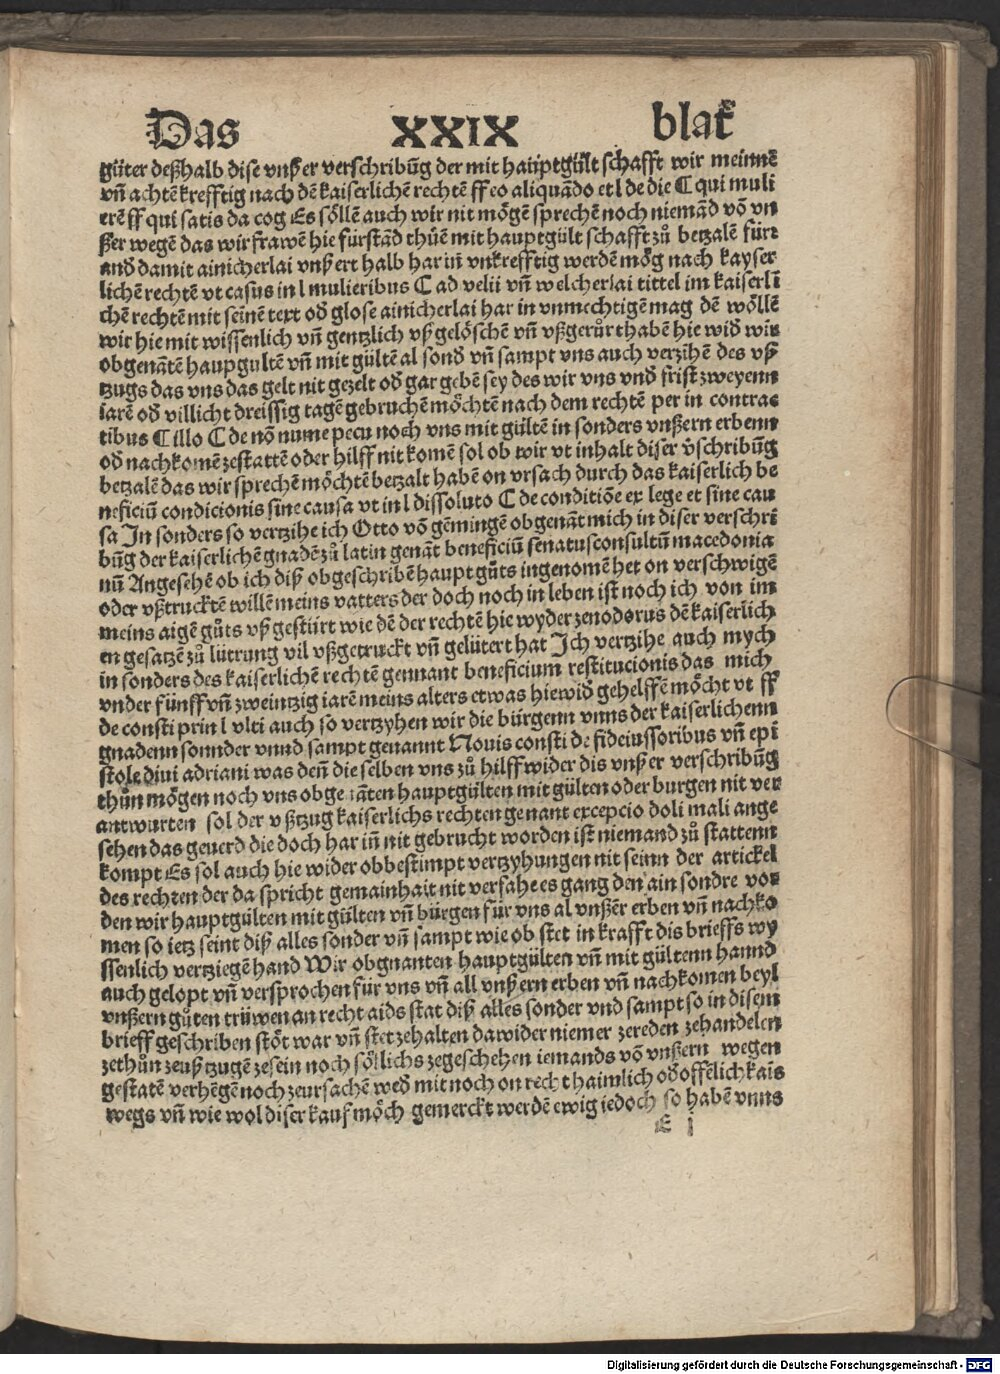 Das XXIX blat̃
güter deßhalb dise vnßer verschribūg der mit hauptgült schafft wir meinnē
vn̄ achtē krefftig nach dē kaiserlichē rechtē ff eo aliquādo et l de die C qui muli
erē ff qui satis da cog Es söllē auch wir nit mögē sprechē noch niemād vō vn
ßer wegē das wir frawē hie fürstād thůē mit hauptgült schafft zů betzalē fürz
and damit ainicherlai vnßert halb har in̄ vnkrefftig werdē mög nach kayser
lichē rechtē vt casus in l mulieribus C ad velii vn̄ welcherlai tittel im kaiserlī
chē rechtē mit seinē text od glose ainicherlai har in vnmechtigē mag dē wöllē
wir hie mit wissenlich vn̄ gentzlich vß gelöschē vn̄ vßgerůrt habē hie wid wir
obgenātē haupgultē vn̄ mit gültē al sond vn̄ sampt vns auch verzihē des vß
tzugs das vns das gelt nit gezelt od gar gebē sey des wir vns vnd frist zweyenn
iarē od villicht dreissig tagē gebruchē möchtē nach dem rechtē per in contrac
tibus C illo C de nō nume pecu noch vns mit gültē in sonders vnßern erbenn
od nachkomē zestattē oder hilff nit komē sol ob wir vt inhalt diser v̄schribūg
betzalē das wir sprechē möchtē betzalt habē on vrsach durch das kaiserlich be
neficiū condicionis sine causa vt in l dissoluto C de conditiōe ex lege et sine cau
sa In sonders so vertzihe ich Otto vō gēmingē obgenāt mich in diser verschri
būg der kaiserlichē gnadē zů latin genāt beneficiū senatusconsultū macedonia
nū Angesehē ob ich diß obgeschribē haupt gůts ingenomē het on verschwigē
oder vßtrucktē willē meins vatters der doch noch in leben ist noch ich von im
meins aigē gůts vß gestürt wie dē der rechtē hie wyder zenodorus dē kaiserlich
en gesatzē zů lütrung vil vßgetruckt vn̄ gelütert hat Ich vertzihe auch mych
in sonders des kaiserlichē rechtē gennant beneficium restitucionis das mich
vnder fünff vn̄ zweintzig iarē meins alters etwas hiewid gehelffē möcht vt ff
de consti prin l vlti auch so vertzyhen wir die bürgenn vnns der kaiserlichenn
gnadenn sonnder vnnd sampt genannt Nouis consti de fideiussoribus vn̄ epi
stole diui adriani was den̄ die selben vns zů hilff wider dis vnßer verschribūg
thůn mögen noch vns obgenāten hauptgülten mit gülten oder burgen nit ver
antwurten sol der vßtzug kaiserlichs rechten genant excepcio doli mali ange
sehen das geuerd die doch har in̄ nit gebrucht worden ist niemand zů stattenn
kompt Es sol auch hie wider obbestimpt vertzyhungen nit seinn der artickel
des rechten der da spricht gemainhait nit verfahe es gang den ain sondre vor
den wir hauptgülten mit gülten vn̄ bürgen für vns al vnßer erben vn̄ nachko
men so ietz seint diß alles sonder vn̄ sampt wie ob stet in krafft dis brieffs wy
ssenlich vertziegē hand Wir obgnanten hauptgülten vn̄ mit gültenn hannd
auch gelopt vn̄ versprochen für vns vn̄ all vnßern erben vn̄ nachkomen beyl
vnßern gůten trüwen an recht aids stat diß alles sonder vnd sampt so in disem
brieff geschriben stöt war vn̄ stet zehalten dawider niemer zereden zehandelen
zethůn zeuß tzugē zesein noch söllichs zegeschehen iemands vō vnßern wegen
gestatē verhēgē noch zeursachē wed mit noch on recht haimlich od offēlich kais
wegs vn̄ wie wol diser kauf möch gemerckt werdē ewig iedoch so habē vnns
E i
Digitalisierung gefördert durch die Deutsche Forschungsgemeinschaft - DFG